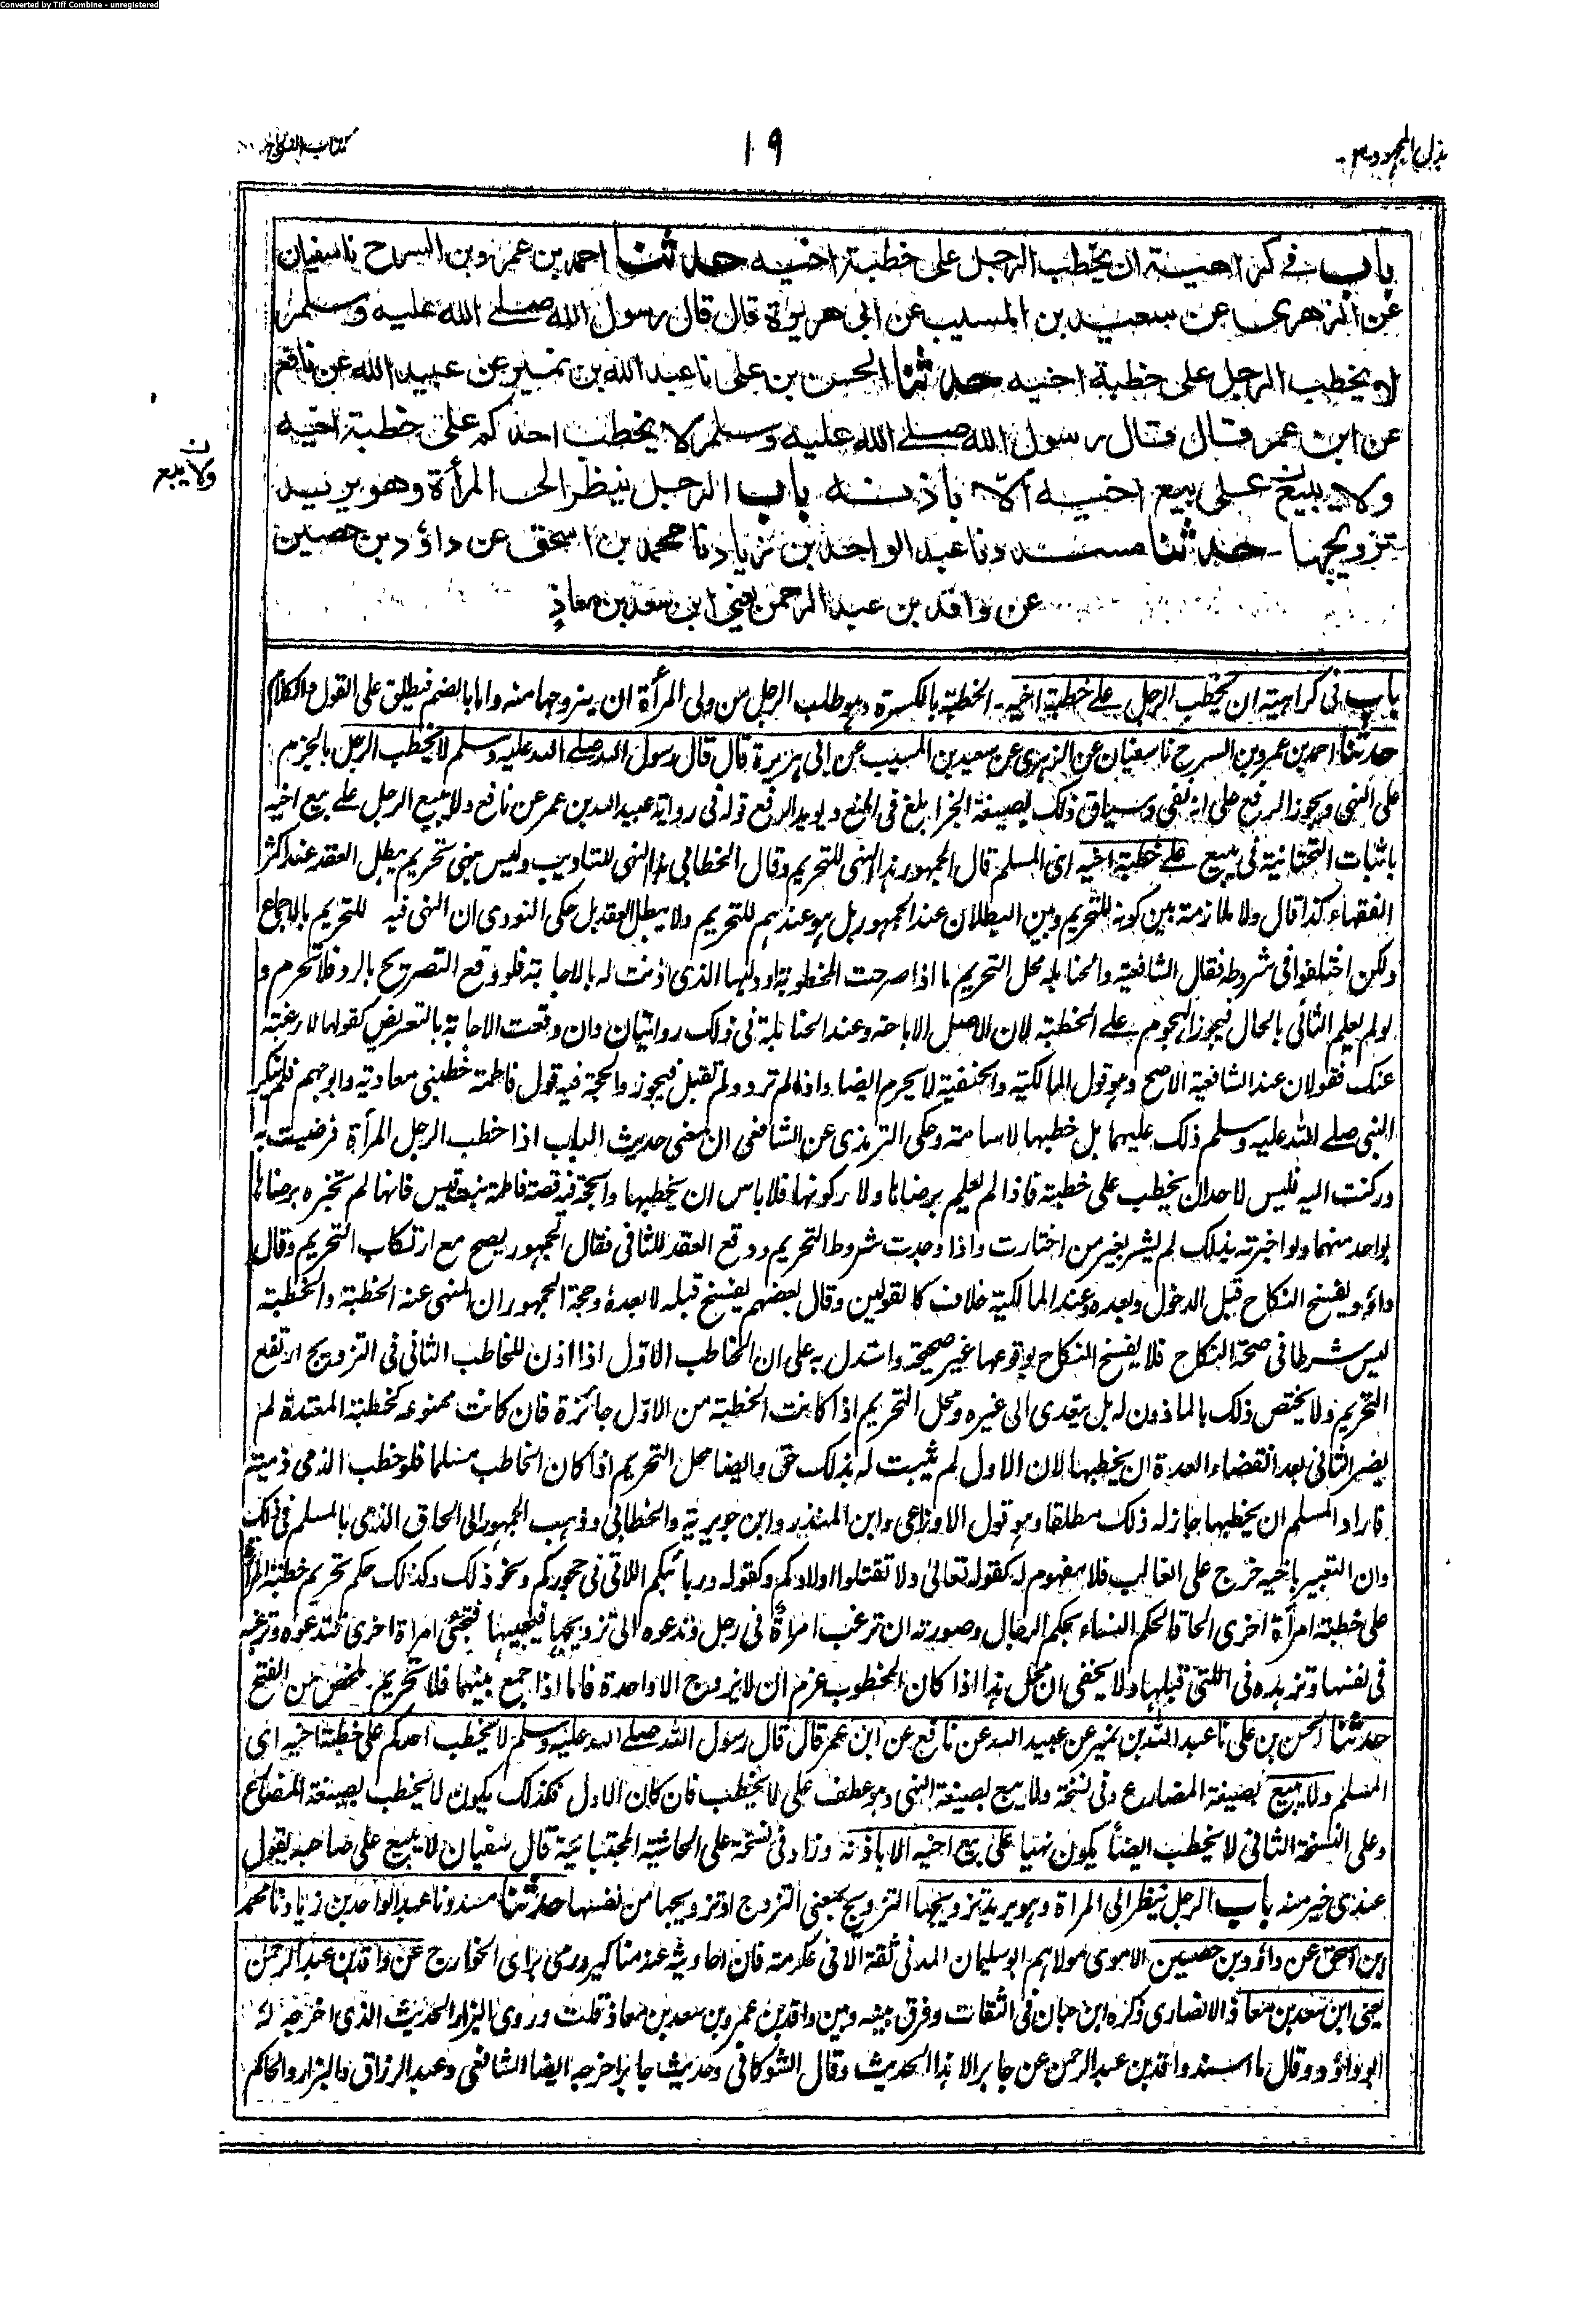 Converted by Tiff Combine - unregistered
بذل المجهود-٣
١٩
كتاب النكاح
باب في كراهية ان يخطب الرجل على خطبة اخيه حدثنا احمد بن عمرو بن السرح نا سفيان
عن الزهري عن سعيد بن المسيب عن ابي هريرة قال قال رسول الله صلى الله عليه وسلم
لا يخطب الرجل على خطبة اخيه حدثنا الحسن بن علي نا عبد الله بن نمير عن عبيد الله عن نافع
عن ابن عمر قال قال رسول الله صلى الله عليه وسلم لا يخطب احدكم على خطبة اخيه
ولا يبيع على بيع اخيه الا باذنه باب الرجل ينظر الى المرأة وهو يريد
ولا يبع
تزويجها - حدثنا مسدد نا عبد الواحد بن زياد نا محمد بن اسحق عن داؤد بن حصين
عن واقد بن عبد الرحمن يعني ابن سعد بن معاذ
باب في كراهية ان يخطب الرجل على خطبة اخيه - الخطبة بالكسرة وهو طلب الرجل من ولى المرأة ان يزوجها منه واما بالضم فيطلق على القول والكلام
حدثنا احمد بن عمرو بن السرح نا سفيان عن الزهري عن سعيد بن المسيب عن ابي هريرة قال قال رسول الله صلى الله عليه وسلم لا يخطب الرجل بالجزم
على النهي ويجوز الرفع على انه نفي وسياق ذلك بصيغة الخبر ابلغ في المنع ويؤيد الرفع قوله في رواية عبيد الله بن عمر عن نافع ولا يبيع الرجل على بيع اخيه
باثبات التحتانية في يبيع على خطبة اخيه اى المسلم قال الجمهور هذا النهى للتحريم وقال الخطابي هذا النهى للتاديب وليس بنهى تحريم يبطل العقد عند اكثر
الفقهاء كذا قال ولا ملازمة بين كونه للتحريم وبين البطلان عند الجمهور بل هو عندهم للتحريم ولا يبطل العقد بل حكى النووى ان النهى فيه للتحريم بالاجماع
ولكن اختلفوا في شروطه فقال الشافعية والحنابلة محل التحريم ما اذا صرحت المخطوبة او وليها الذى اذنت له بالاجابة فلو وقع التصريح بالرد فلا تحرم و
لو لم يعلم الثانى بالحال فيجوز الهجوم على الخطبة لان الاصل الاباحة وعند الحنابلة في ذلك روايتان وان وقعت الاجابة بالتعريض كقولها لا رغبة
عنك فقولان عند الشافعية الاصح وهو قول المالكية والحنفية لا يحرم ايضا واذا لم ترد ولم تقبل فيجوز والحجة فيه قول فاطمة خطبنى معاوية وابو جهم فلم ينكر
النبى صلى الله عليه وسلم ذلك عليهما بل خطبها لاسامة وحكى الترمذى عن الشافعى ان معنى حديث الباب اذا خطب الرجل المرأة فرضيت به
وركنت اليه فليس لاحد ان يخطب على خطبة فاذا لم يعلم برضاها ولا ركونها فلا باس ان يخطبها والحجة فيه قصة فاطمة بنت قيس فانها لم تخبره برضاها
بواحد منهما ولو اخبرته بذلك لم يشر بغير من اختارت واذا وجدت شروط التحريم ووقع العقد للثانى فقال الجمهور يصح مع ارتكاب التحريم وقال
داؤد يفسخ النكاح قبل الدخول وبعده وعند المالكية خلاف كالقولين وقال بعضهم يفسخ قبله لا بعده وحجة الجمهور ان المنهى عنه الخطبة والخطبة
ليس شرطا في صحة النكاح فلا يفسخ النكاح بوقوعها غير صحيحة واستدل به على ان الخاطب الاول اذا اذن للخاطب الثانى في التزويج ارتفع
التحريم ولا يختص ذلك بالماذون له بل يتعدى الى غيره ومحل التحريم اذا كانت الخطبة من الاول جائزة فان كانت ممنوعة كخطبة المعتدة لم
يضر الثانى بعد انقضاء العدة ان يخطبها لان الاول لم يثبت له بذلك حق وايضا محل التحريم اذا كان الخاطب مسلما فلو خطب الذمى ذمية
فاراد المسلم ان يخطبها جاز له ذلك مطلقا وهو قول الاوزاعى وابن المنذر وابن جويرية والخطابى وذهب الجمهور الى الحاق الذمى بالمسلم في ذلك
وان التعبير باخيه خرج على الغالب فلا مفهوم له كقوله تعالى ولا تقتلوا اولادكم وكقوله وربائبكم اللاتى فى حجوركم ونحو ذلك وكذلك حكم تحريم خطبة المرأة
على خطبة امرأة اخرى الحاقا لحكم النساء بحكم الرجال وصورته ان ترغب امرأة في رجل وتدعوه الى تزويجها فيجيبها فتجئ امراة اخرى فتدعوه وترغبه
في نفسها وتزهده في اللتى قبلها ولا يخفى ان محل هذا اذا كان المخطوب عزم ان لا يزوج الا واحدة فاما اذا جمع بينهما فلا تحريم. ملخص من الفتح
حدثنا الحسن بن على نا عبد الله بن نمير عن عبيد الله عن نافع عن ابن عمر قال قال رسول الله صلى الله عليه وسلم لا يخطب احدكم على خطبة اخيه اى
المسلم ولا يبيع بصيغة المضارع وفى نسخة ولا يبع بصيغة النهى وهو عطف على لا يخطب فان كان الاول فكذلك يكون لا يخطب بصيغة المضارع
وعلى النسخة الثانى لا يخطب ايضا يكون نهيا على بيع اخيه الا باذنه وزاد في نسخة على الحاشية المجتبائية قال سفيان لا يبيع على صاحبه يقول
عندى خير منه باب الرجل ينظر الى المراة وهو يريد تزويجها التزويج بمعنى التزوج او تزويجها من نفسها حدثنا مسدد نا عبد الواحد بن زياد نا محمد
بن اسحق عن داؤد بن حصين الاموى مولاهم ابو سليمان المدنى ثقة الا في عكرمة فان احاديثه عنه مناكير ورمى براى الخوارج عن واقد بن عبد الرحمن
يعنى ابن سعد بن معاذ الانصارى ذكره ابن حبان فى الثقات وفرق بينه وبين واقد بن عمرو بن سعد بن معاذ قلت وروى البزار الحديث الذى اخرجه له
ابو داؤد وقال ما اسند واقد بن عبد الرحمن عن جابر الا هذا الحديث وقال الشوكانى وحديث جابر اخرجه ايضا الشافعى وعبد الرزاق والبزار والحاكم